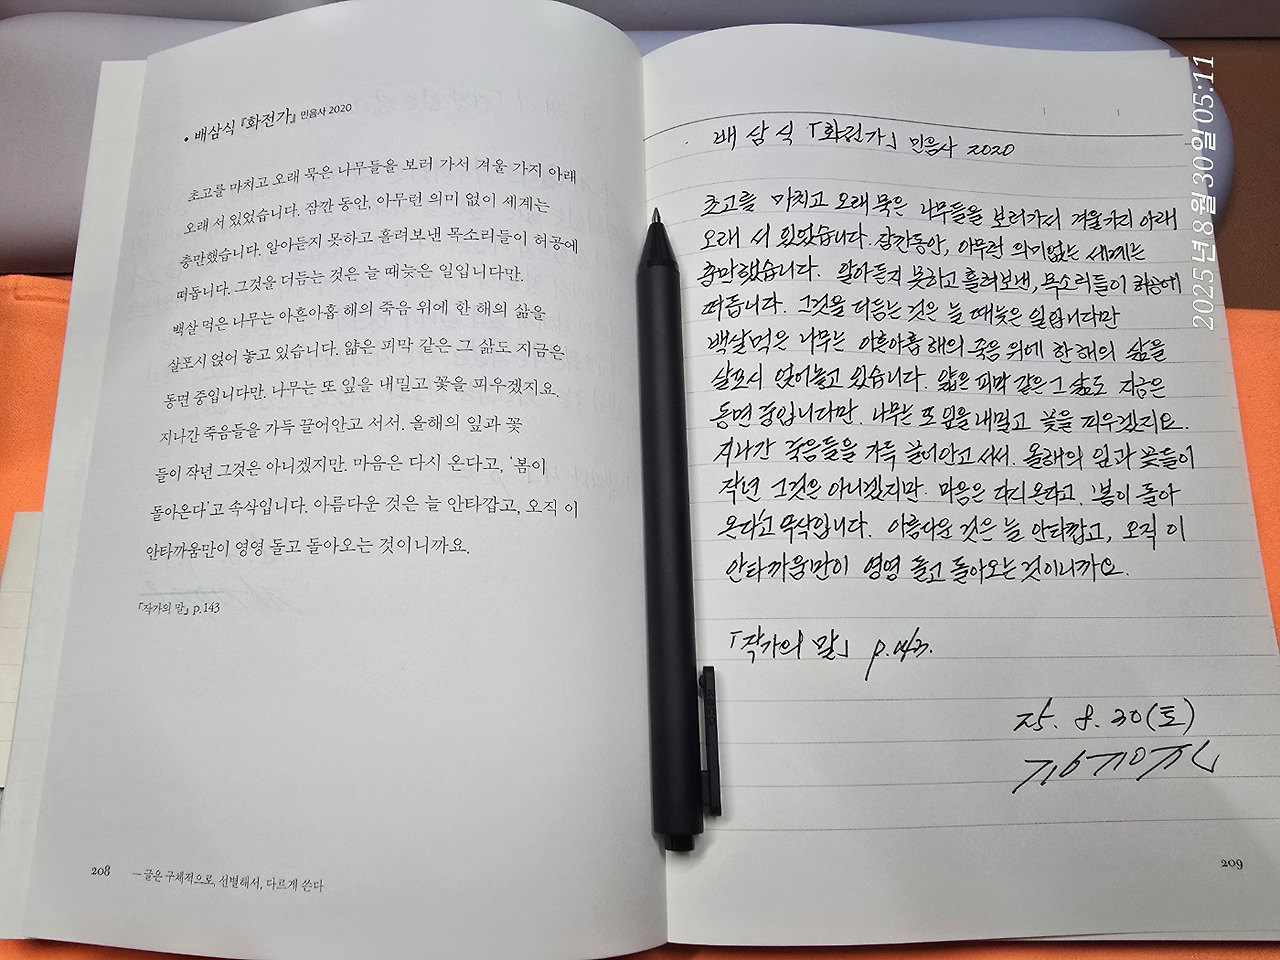 • 배삼식 『화전가』 민음사 2020
초고를 마치고 오래 묵은 나무들을 보러 가서 겨울 가지 아래
오래 서 있었습니다. 잠깐 동안, 아무런 의미 없이 세계는
충만했습니다. 알아듣지 못하고 흘려보낸 목소리들이 허공에
떠돕니다. 그것을 더듬는 것은 늘 때늦은 일입니다만.
백살 먹은 나무는 아흔아홉 해의 죽음 위에 한 해의 삶을
살포시 얹어 놓고 있습니다. 얇은 피막 같은 그 삶도 지금은
동면 중입니다만. 나무는 또 잎을 내밀고 꽃을 피우겠지요.
지나간 죽음들을 가득 끌어안고 서서. 올해의 잎과 꽃
들이 작년 그것은 아니겠지만. 마음은 다시 온다고, ‘봄이
돌아온다’고 속삭입니다. 아름다운 것은 늘 안타깝고, 오직 이
안타까움만이 영영 돌고 돌아오는 것이니까요.
「작가의 말」 p.143
208
— 글은 구체적으로, 선별해서, 다르게 쓴다
배삼식 「화전가」 민음사 2020
초고를 마치고 오래 묵은 나무들을 보러가서 겨울가지 아래
오래 서 있었습니다. 잠깐동안, 아무런 의미없는 세계는
충만했습니다. 알아듣지 못하고 흘려보낸, 목소리들이 허공에
떠돕니다. 그것을 더듬는 것은 늘 때늦은 일입니다만
백살먹은 나무는 아흔아홉해의 죽음 위에 한해의 삶을
살포시 얹어놓고 있습니다. 얇은 피막 같은 그 삶도 지금은
동면 중입니다만. 나무는 또 잎을 내밀고 꽃을 피우겠지요.
지나간 죽음들을 가득 끌어안고 서서. 올해의 잎과 꽃들이
작년 그것은 아니겠지만. 마음은 다시온다고, '봄이 돌아
온다'고 속삭입니다. 아름다운 것은 늘 안타깝고, 오직 이
안타까움만이 영영 돌고 돌아오는 것이니까요.
「작가의 말」 p.143.
25. 8. 30(토)
209
2025년 8월 30일 05:11